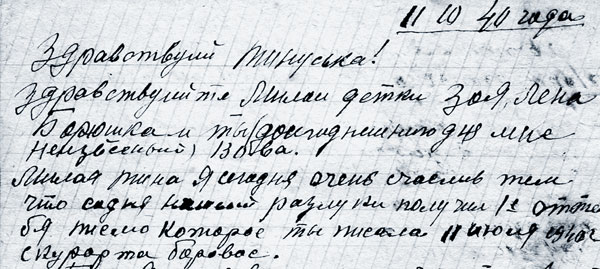 11 10 40 года
Здравствуй Тинуська!
Здравствуйте Милаи детки Зоя, Лена
Борюшка и ты (до сигодняшнию дня мне
неизвесный) Вова.
Милая Тина Я сегодня очень счаслив тем
что со дня нашей разлуки получил 1е от те
бя писмо которое ты писала 11 июня 1940г
с курорта Боровое.